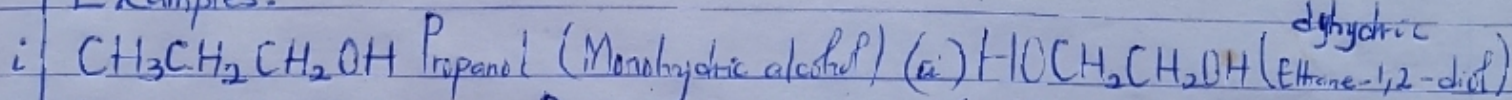 Examples:
i) CH₃CH₂CH₂OH Propanol (Monohydric alcohol) (ii) HOCH₂CH₂OH (Ethane-1,2-diol) dyhydric